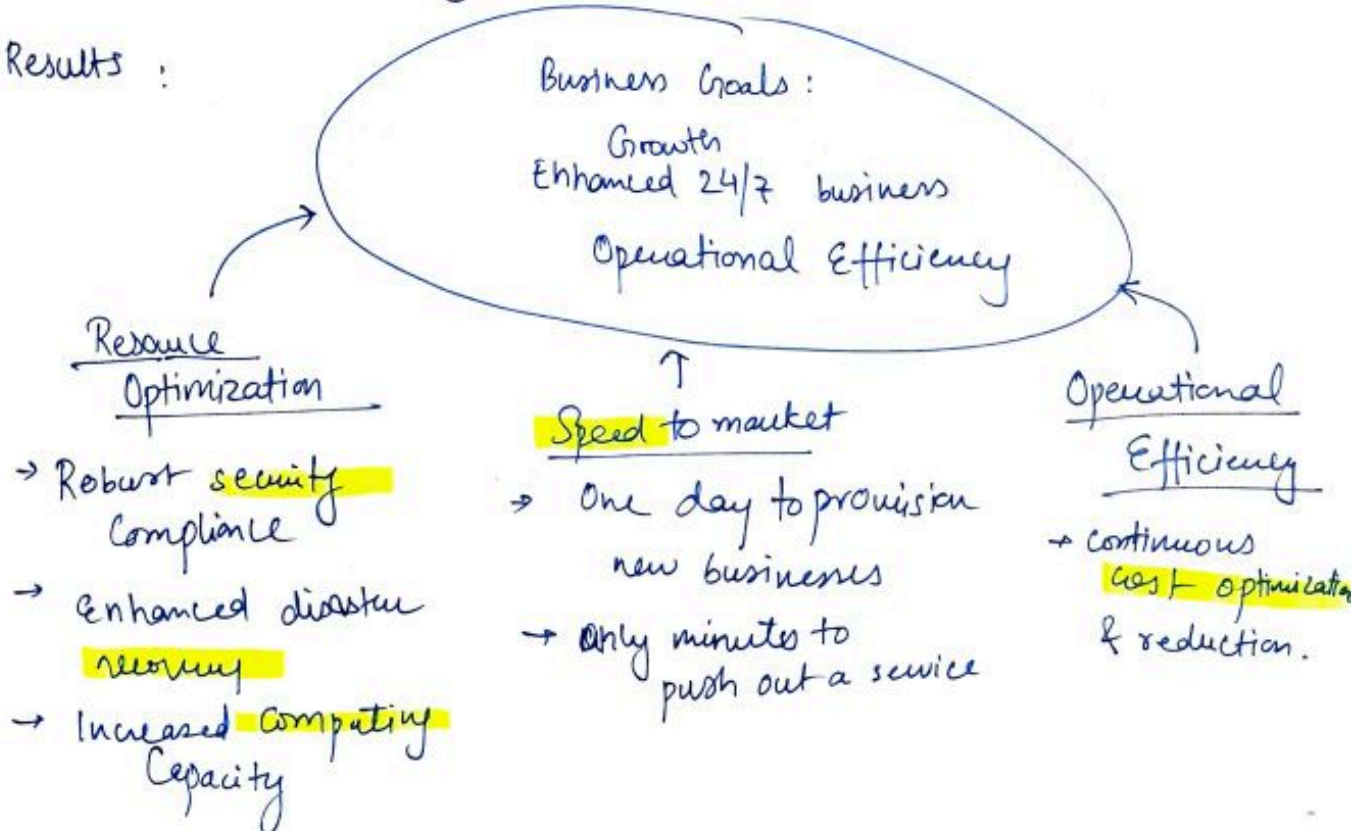 Results :
Business Goals :
Growth
Enhanced 24/7 business
Operational Efficiency
Resource
Optimization
→ Robust security
Compliance
→ Enhanced disaster
recovery
→ Increased computing
Capacity
Speed to market
→ One day to provision
new businesses
→ Only minutes to
push out a service
Operational
Efficiency
→ continuous
cost optimization
& reduction.